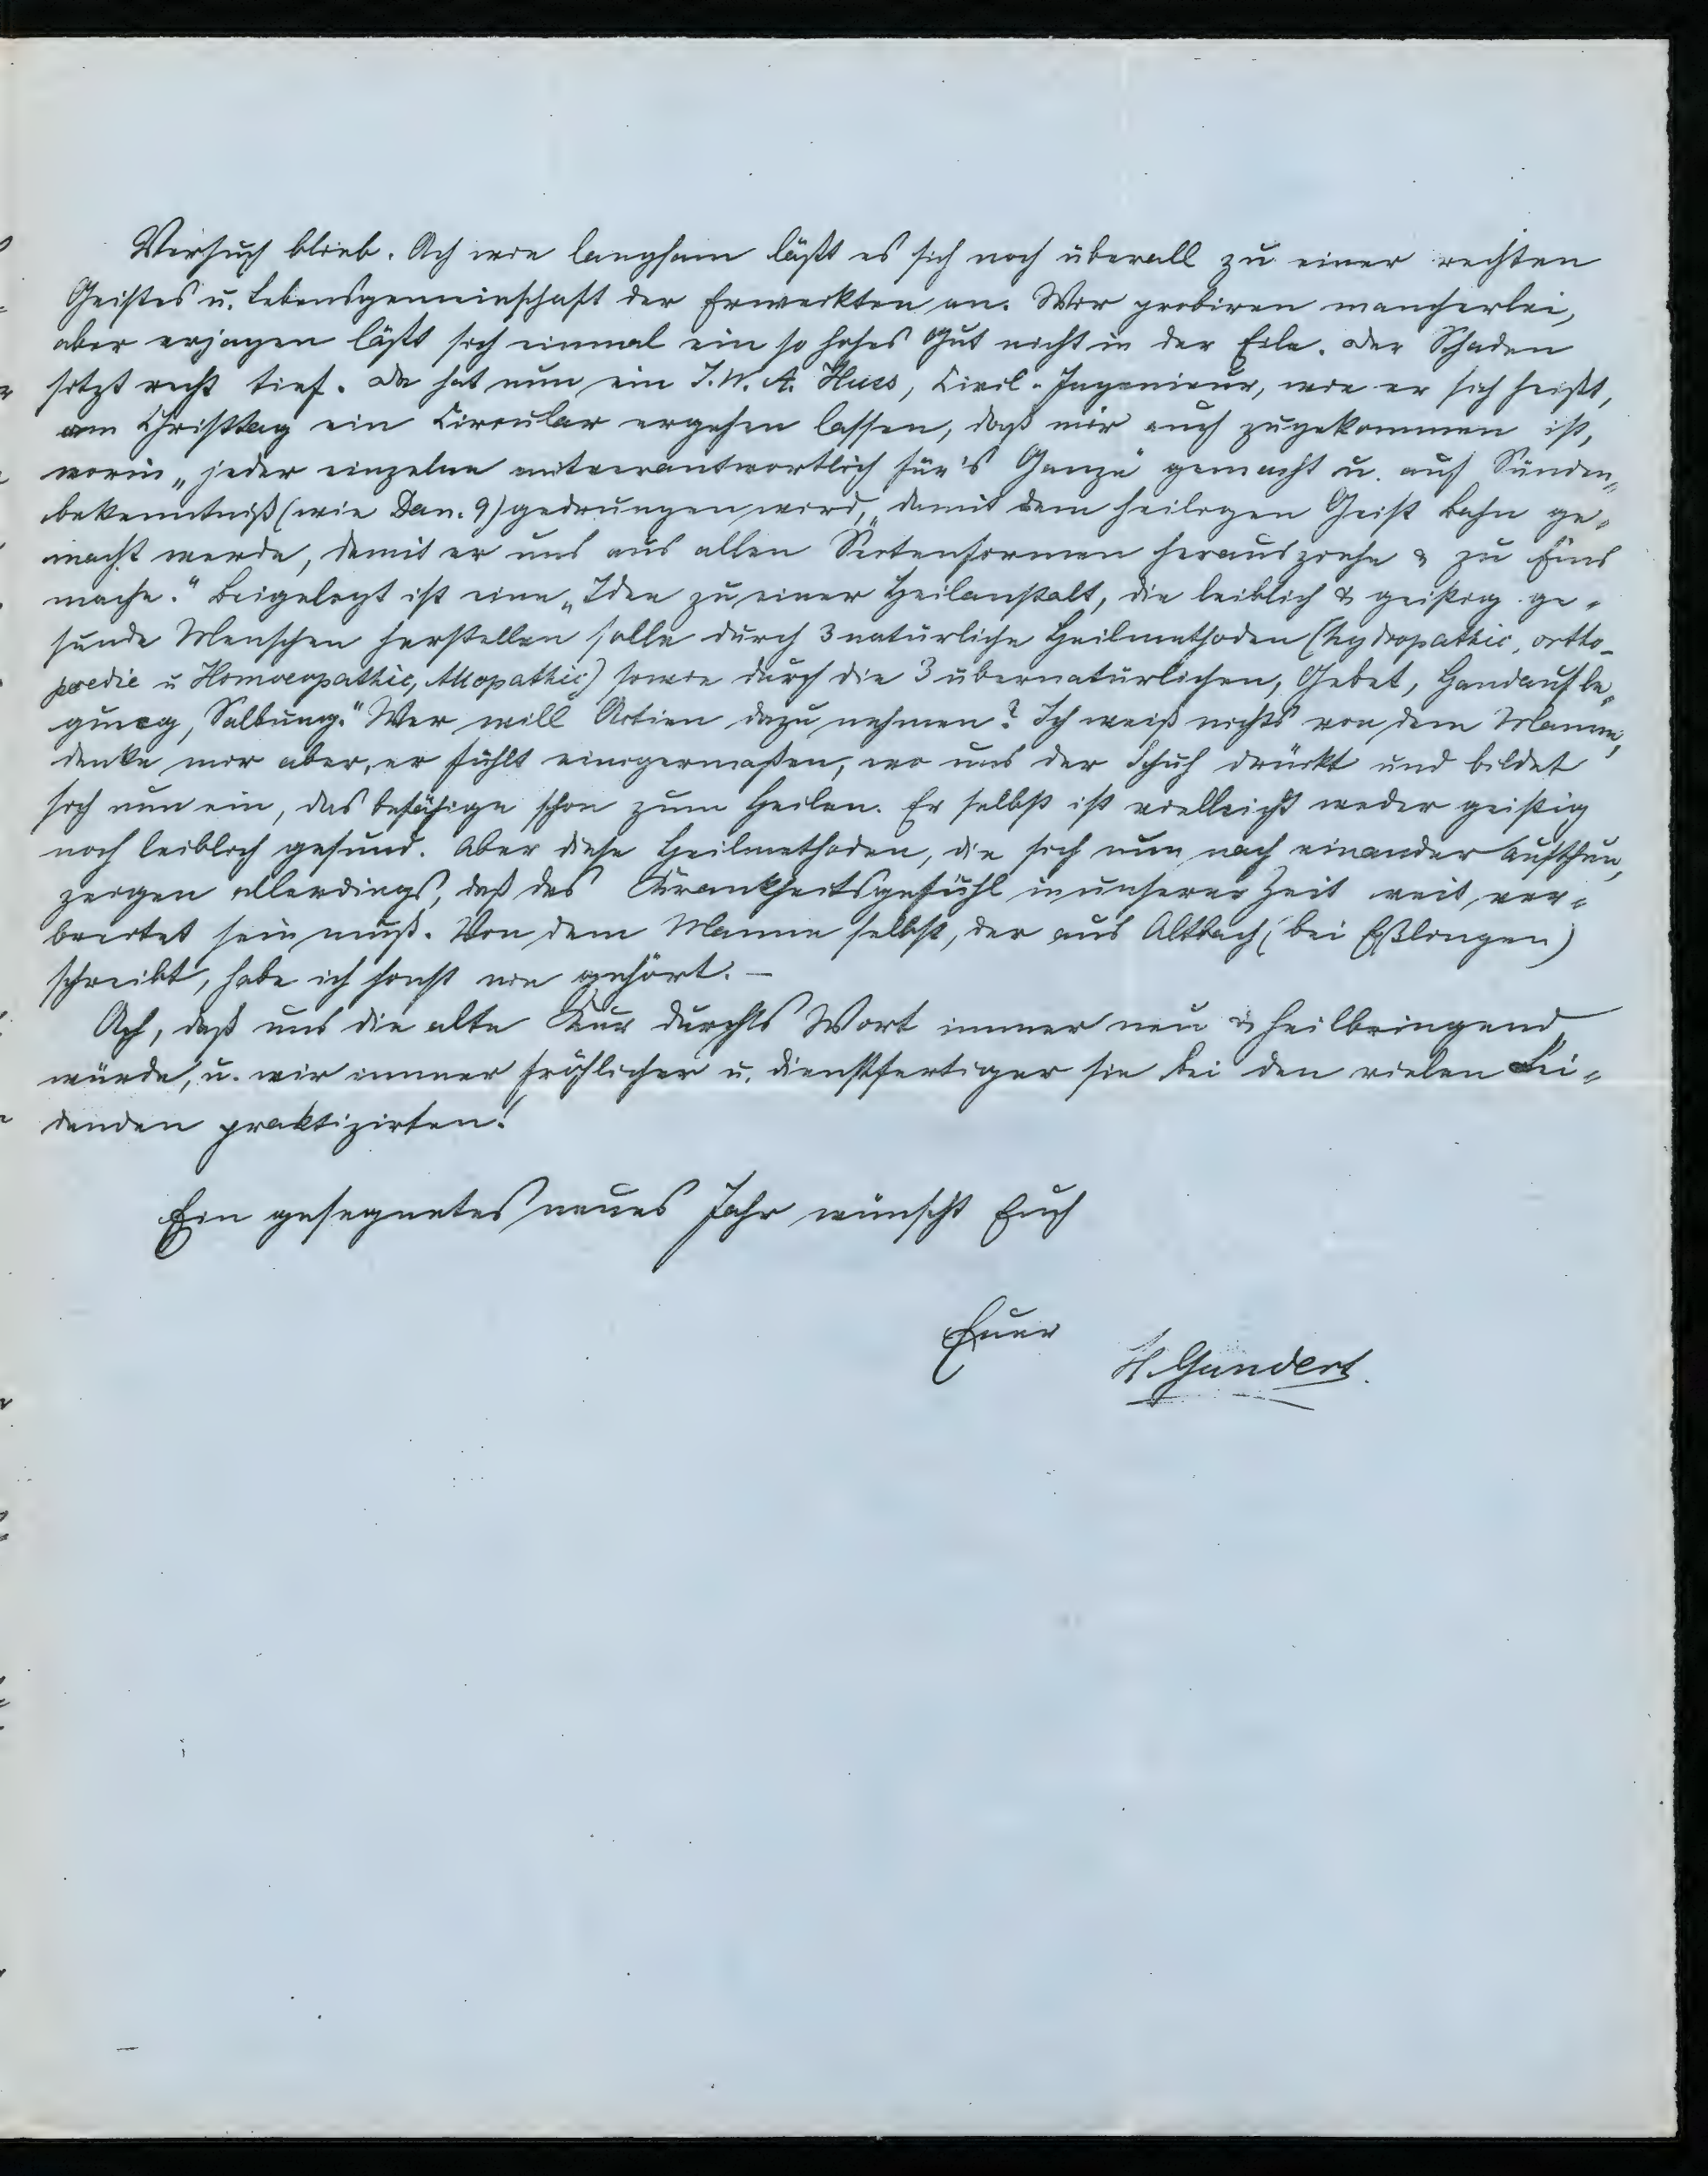 Versuch blieb. Ach wie langsam läßt es sich noch überall zu einer rechten
Geistes u. Lebensgemeinschaft der Erweckten an. Wir probiren mancherlei,
aber erjagen läßt sich einmal ein so hohes Gut nicht in der Eile. Der Schaden
sitzt recht tief. Da hat nun ein J. W. A. Huss, Civil-Ingenieur, wie er sich heißt,
am Christtag ein Circular ergehen lassen, daß mir auch zugekommen ist,
worin „jeder einzelne mitverantwortlich für's Ganze gemacht u. auf Sünden-
bekenntniß (wie Dan. 9) gedrungen wird, „damit dem heiligen Geist Bahn ge-
macht werde, damit er uns aus allen Sectenformen herausziehe & zu Eins
mache." Beigelegt ist eine „Idee zu einer Heilanstalt, die leiblich & geistig ge-
sunde Menschen herstellen solle durch 3 natürliche Heilmethoden (hydropathie, ortho-
poedie u Homoeopathie, Allopathie) sowie durch die 3 übernatürlichen, Gebet, Handaufle-
gung, Salbung." Wer will Actien dazu nehmen? Ich weiß nichts von dem Manne,
denke mir aber, er fühlt einigermaßen, wo uns der Schuh drückt und bildet
sich nun ein, das befähige schon zum Heilen. Er selbst ist vielleicht weder geistig
noch leiblich gesund. Aber diese Heilmethoden, die sich nun nach einander aufthun,
zeigen allerdings, daß das Krankheitsgefühl in unserer Zeit weit ver-
breitet sein muß. Von dem Manne selbst, der aus Altbach (bei Eßlingen)
schreibt, habe ich sonst nie gehört. —
Ach, daß uns die alte Kur durchs Wort immer neu & heilbringend
würde, u. wir immer fröhlicher u. dienstfertiger sie bei den vielen Lei-
denden praktizirten!
Ein gesegnetes neues Jahr wünscht Euch
Euer
H. Gundert.